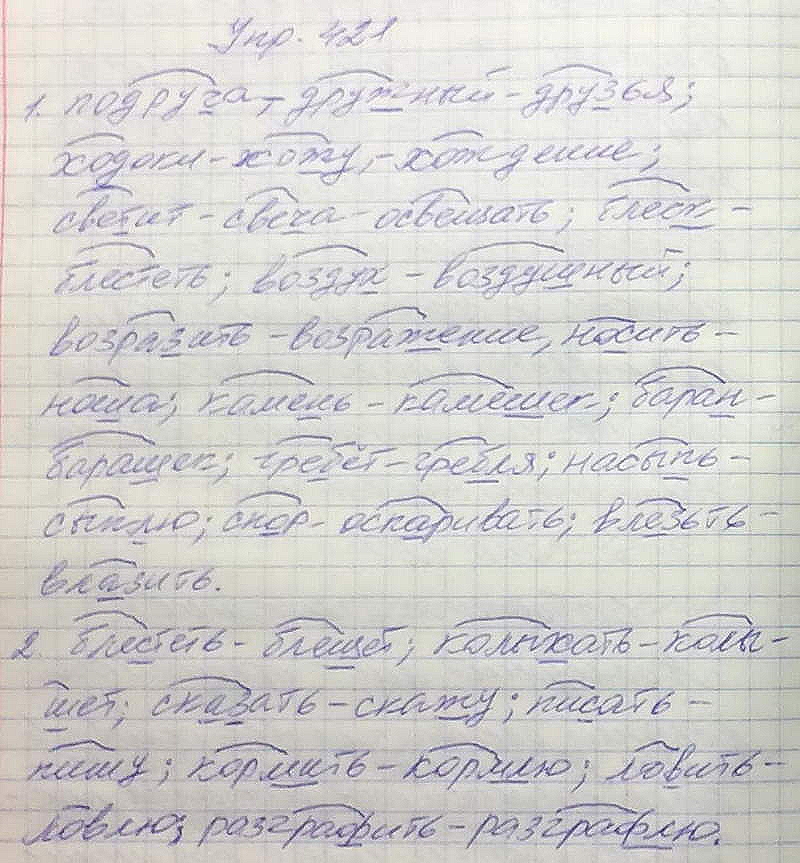 Упр. 421
1. подруга, дружный - друзья;
ходоки - хожу, - хождение;
светит - свеча - освещать; блеск -
блестеть; воздух - воздушный;
возразить - возражение, носить -
ноша; камень - камешек; баран -
барашек; гребёт - гребля; насыпь -
сыплю; спор - оспаривать; влезьть -
влазить.
2. блестеть - блещет; колыхать - колы-
шет; сказать - скажу; писать -
пишу; кормить - кормлю; ловить -
ловлю; разграфить - разграфлю.